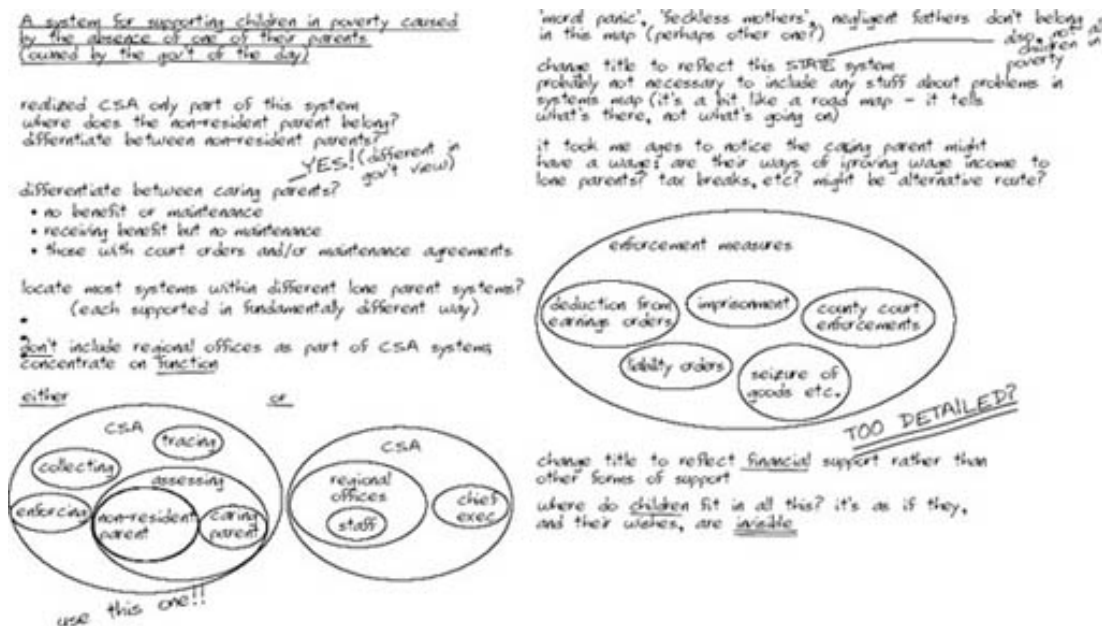 A system for supporting children in poverty caused
by the absence of one of their parents
(owned by the gov't of the day)
realized CSA only part of this system
where does the non-resident parent belong?
differntiate between non-resident parents?
YES! (different in
gov't view)
differentiate between caring parents?
• no benefit or maintenance
• receiving benefit but no maintenance
• those with court orders and/or maintenance agreements
locate most systems within different lone parent systems?
(each supported in fundamentally different way)
•
• don't include regional offices as part of CSA system;
concentrate on function
either
or
CSA
tracing
collecting
assessing
enforcing
non-resident
parent
caring
parent
use this one!!
CSA
regional
offices
staff
chief
exec
'moral panic', 'feckless mothers', negligent fathers don't belong
in this map (perhaps other one?)
also, not all
children in
poverty
change title to reflect this STATE system
probably not necessary to include any stuff about problems in
systems map (it's a bit like a road map - it tells
what's there, not what's going on)
it took me ages to notice the caring parent might
have a wage; are their ways of iproving wage income to
lone parents? tax breaks, etc? might be alternative route?
enforcement measures
deduction from
earnings orders
imprisonment
county court
enforcements
liability orders
seizure of
goods etc.
TOO DETAILED?
change title to reflect financial support rather than
other forms of support
where do children fit in all this? it's as if they,
and their wishes, are invisible